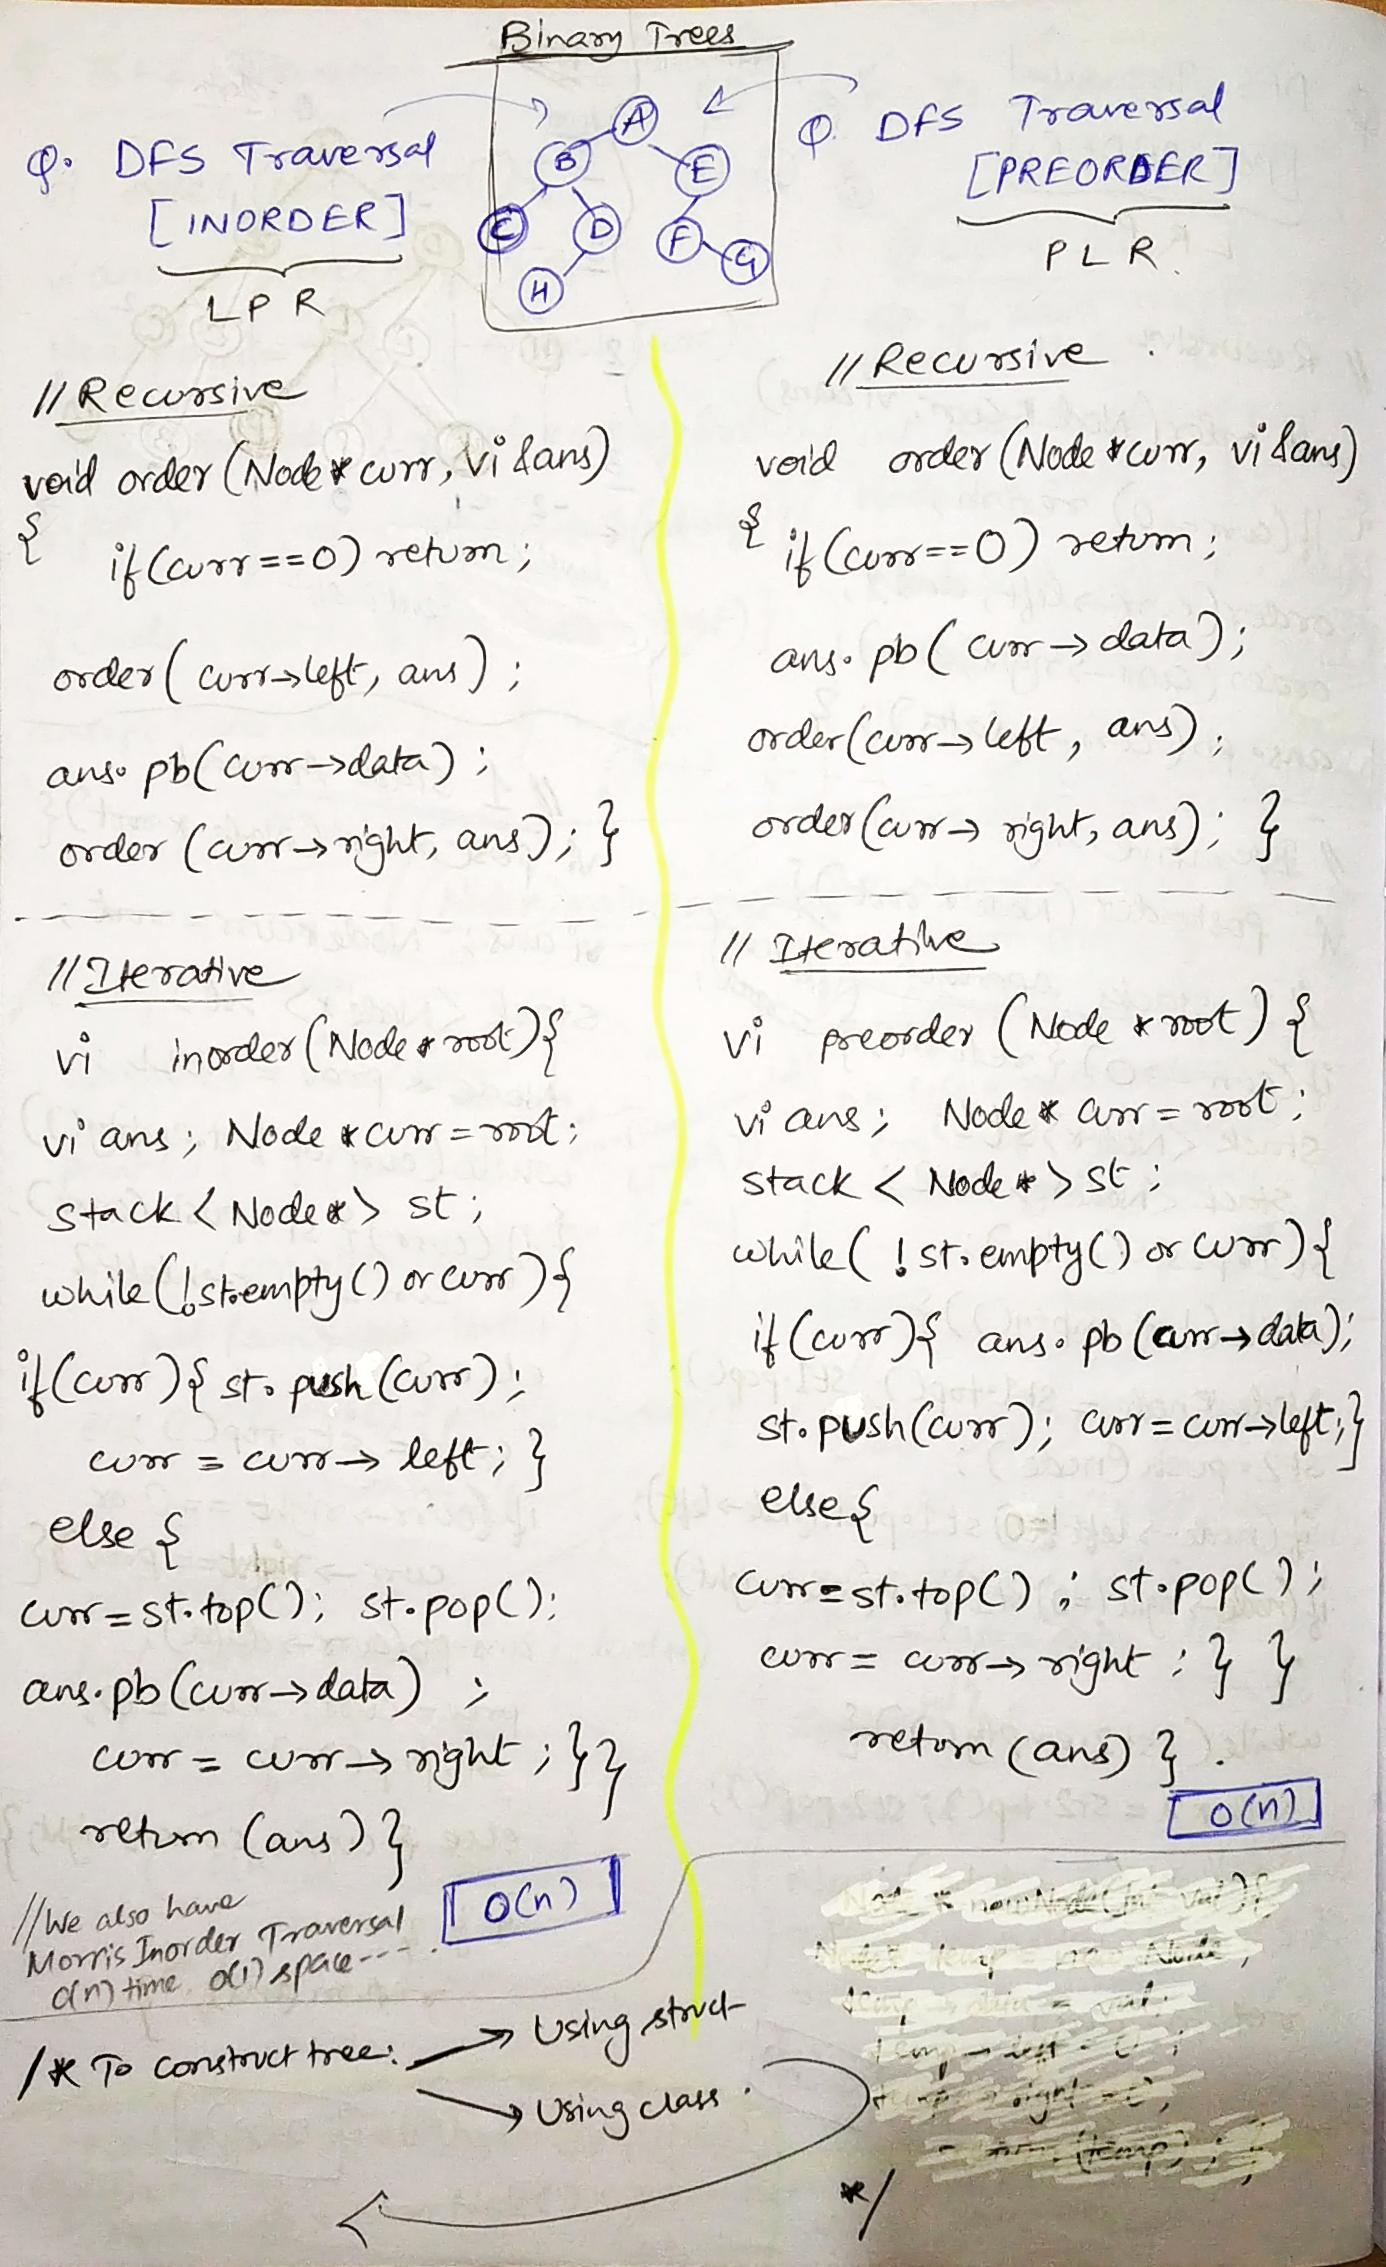 Binary Trees
A
B
E
C
D
F
G
H
Q. DFS Traversal
[INORDER]
L P R
// Recursive
void order (Node *curr, vi &ans)
{
if(curr==0) return;
order(curr→left, ans);
ans.pb(curr→data);
order (curr→right, ans); }
// Iterative
vi inorder(Node *root){
vi ans; Node *curr=root;
stack <Node*> st;
while(!st.empty() or curr){
if(curr){ st.push(curr);
curr = curr→left; }
else {
curr=st.top(); st.pop();
ans.pb(curr→data) ;
curr = curr→right ; }}
return (ans) }
O(n)
//We also have
Morris Inorder Traversal
O(n) time O(1) space----.
Q. DFS Traversal
[PREORDER]
P L R.
// Recursive
void order (Node *curr, vi &ans)
{ if(curr==0) return;
ans.pb(curr→data);
order(curr→left, ans);
order(curr→right, ans); }
// Iterative
vi preorder (Node *root) {
vi ans; Node* curr=root;
stack < Node*> st;
while( !st.empty() or curr){
if(curr){ ans.pb(curr→data);
st.push(curr); curr=curr→left;}
else{
curr=st.top(); st.pop();
curr = curr→right ; } }
return (ans) } .
O(n)
/* To construct tree:
Using struct
Using class .
Node * newNode(int val){
Node* temp = new Node;
temp→data = val;
temp→left = 0 ;
temp→right = 0;
(temp); }
*/